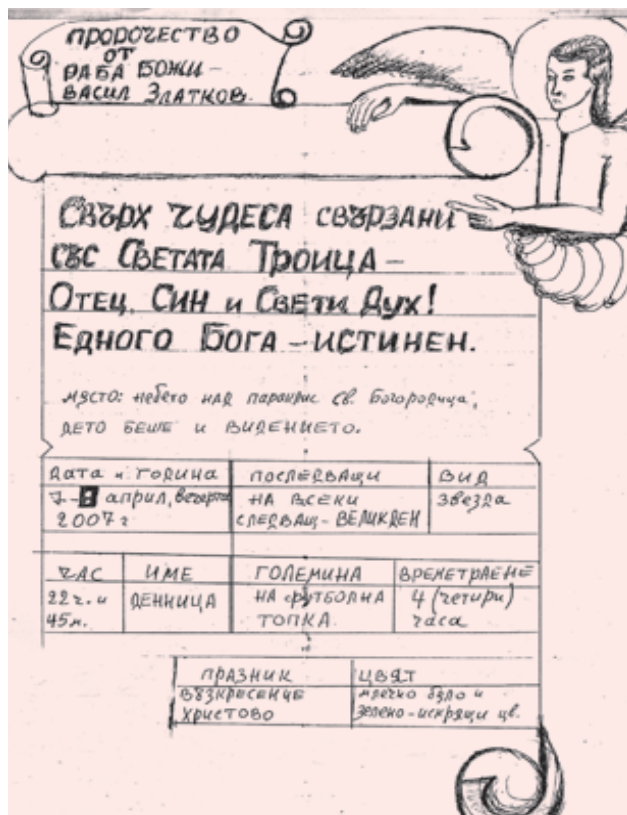 ПРОРОЧЕСТВО
ОТ
РАБА БОЖИ –
ВАСИЛ ЗЛАТКОВ.
СВЪРХ ЧУДЕСА СВЪРЗАНИ
СЪС СВЕТАТА ТРОИЦА –
ОТЕЦ, СИН И СВЕТИ ДУХ!
ЕДНОГО БОГА – ИСТИНЕН.
място: небето над параклис св. Богородица,
ДЕТО БЕШЕ И ВИДЕНИЕТО.
ДАТА и ГОДИНА ПОСЛЕДВАЩИ ВИД
7-8 април, вечерта НА ВСЕКИ звезда
2007 г СЛЕДВАЩ - ВЕЛИКДЕН
ЧАС ИМЕ ГОЛЕМИНА ВРЕМЕТРАЕНЕ
22 ч. и ДЕННИЦА НА ФУТБОЛНА 4 (четири)
45 м. ТОПКА часа
ПРАЗНИК ЦВЯТ
ВЪЗКРЕСЕНИЕ млечно бяло и
ХРИСТОВО зелено-искрящи цв.